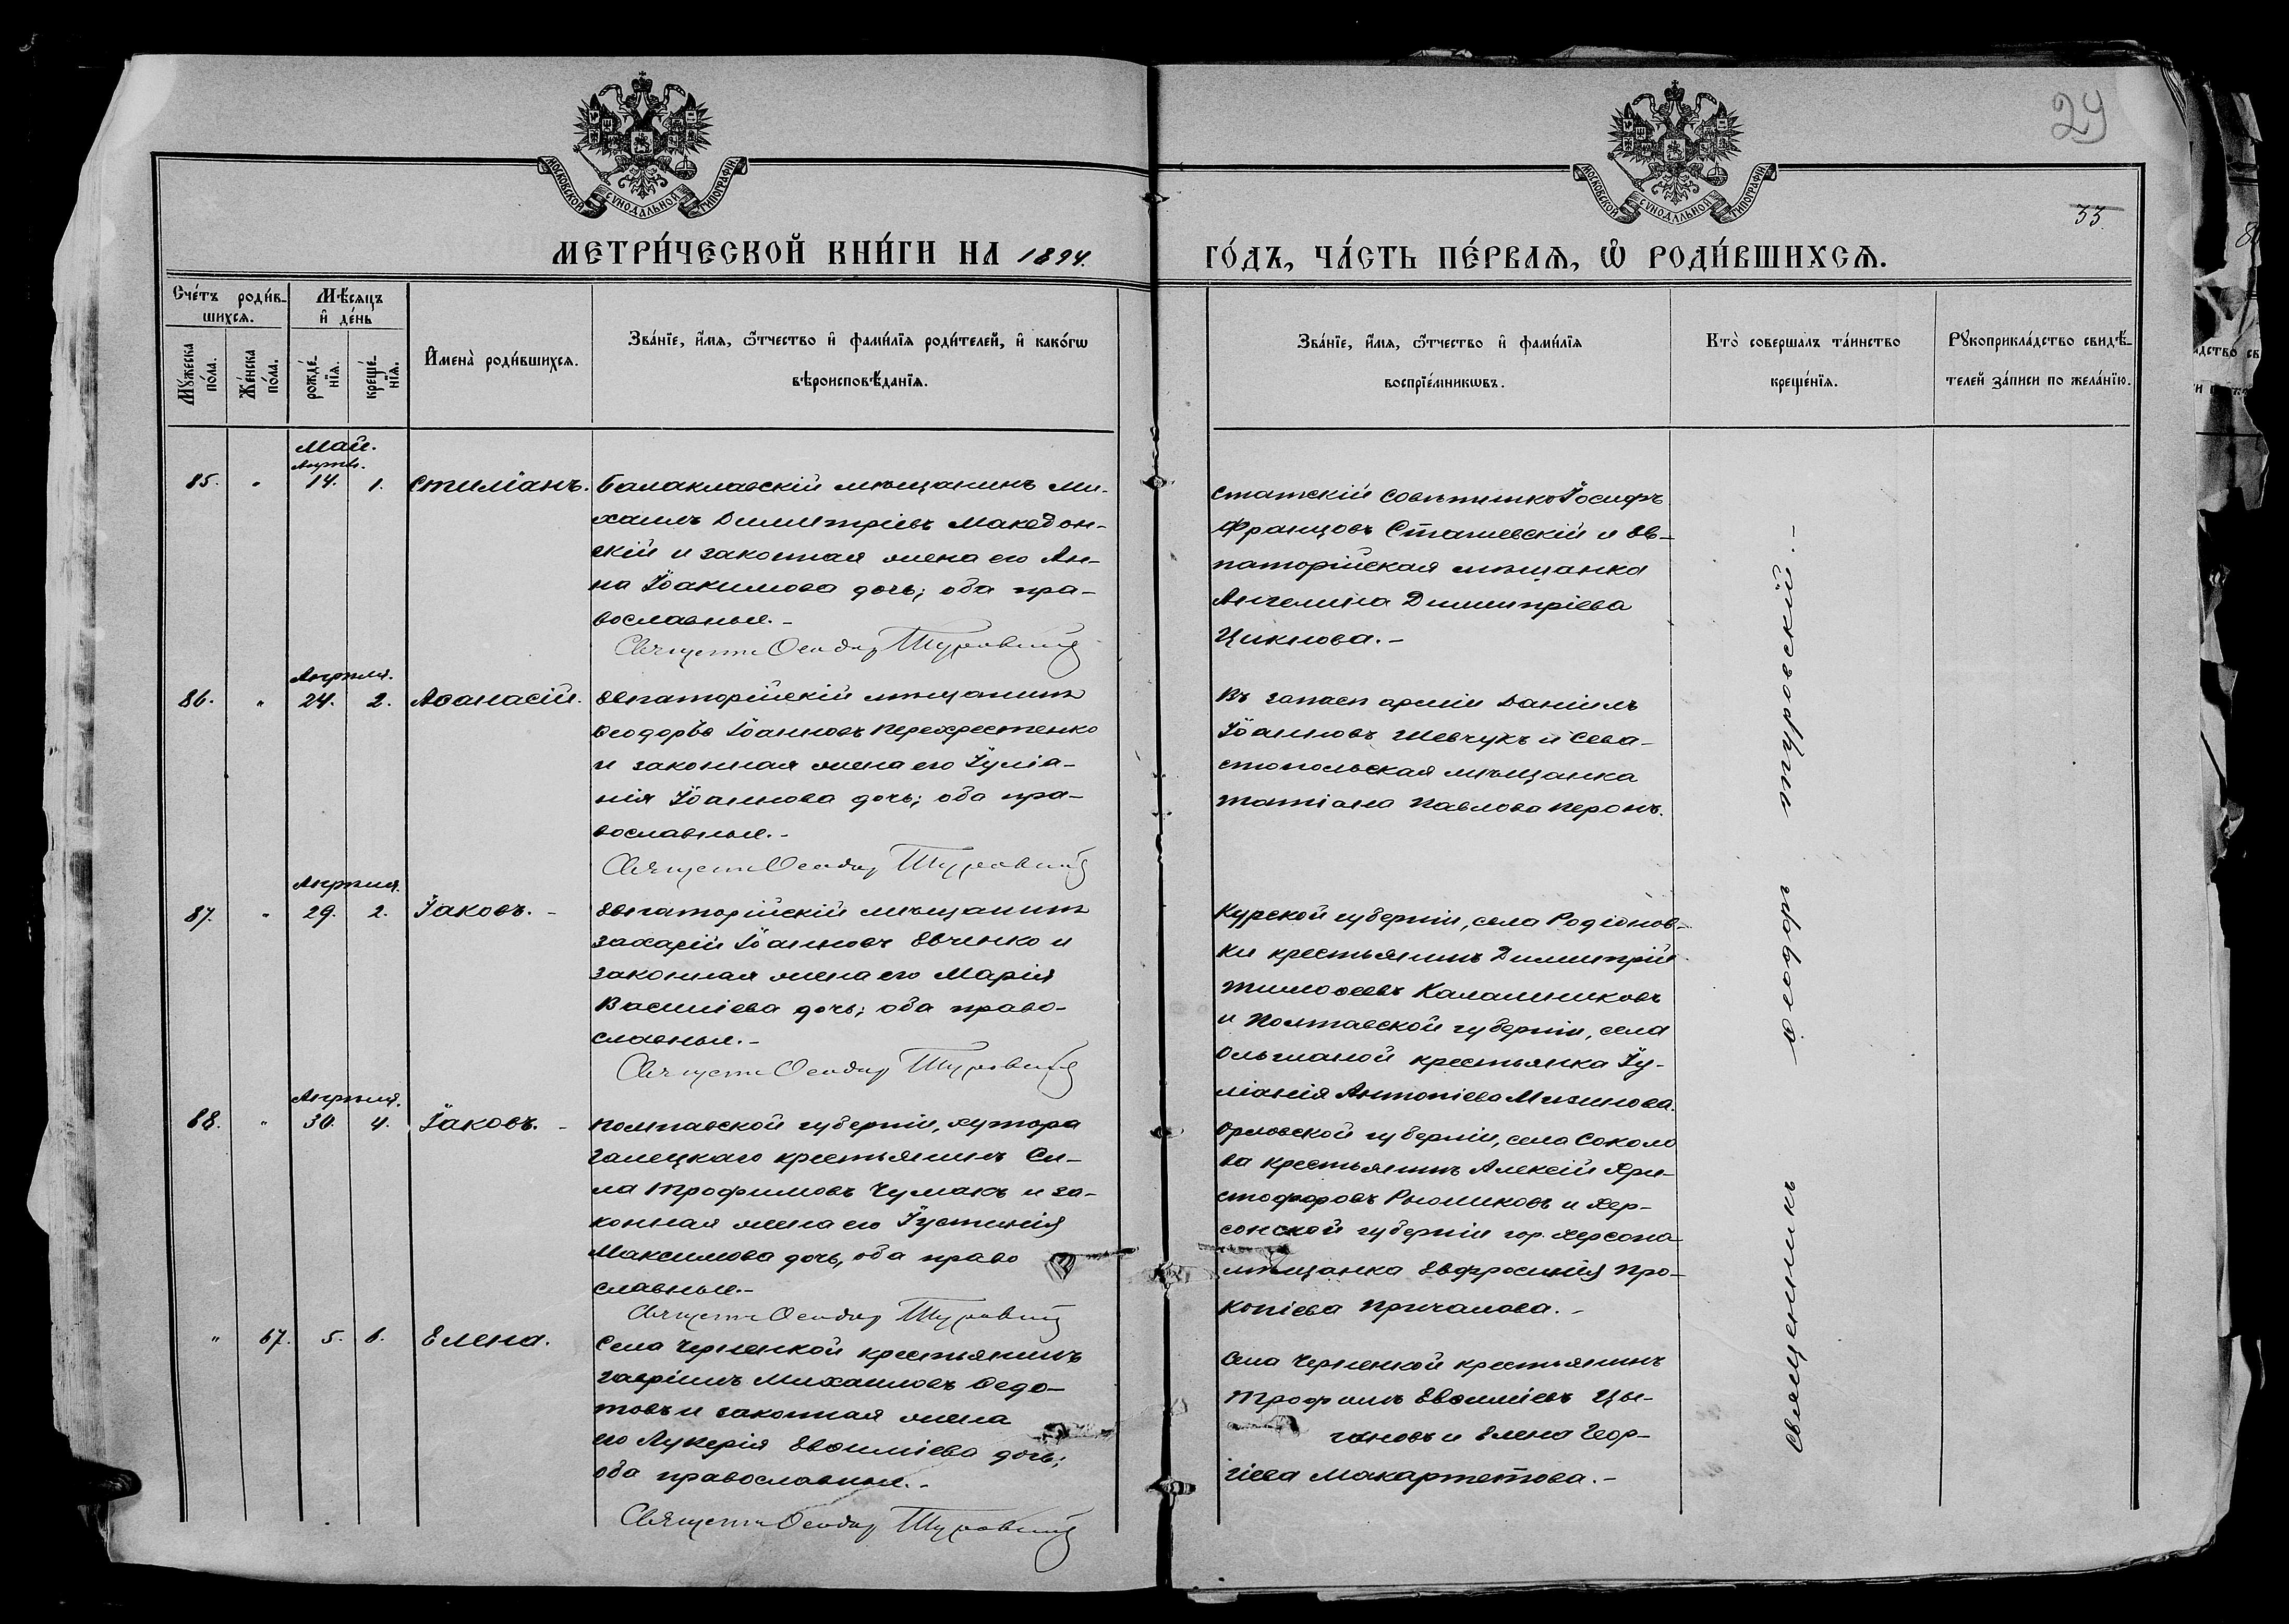 29
33.
МОСКОВСКОЙ СѴНОДАЛЬНОЙ ТИПОГРАФІИ
МОСКОВСКОЙ СѴНОДАЛЬНОЙ ТИПОГРАФІИ
МЕТРИ́ЧЕСКОЙ КНИ́ГИ НА 1894.
ГО́ДЪ, ЧА́СТЬ ПЕ́РВАѦ, Ѽ РОДИ́ВШИХСѦ.
Сче́тъ роди́в-
шихсѧ.
Мꙋ́жеска по́ла.
Же́нска по́ла.
Мѣ́сѧцъ
и҆ де́нь
рожде́-
нїѧ.
креще́-
нїѧ.
И҆мена̀ роди́вшихсѧ.
Зва́нїе, и҆́мѧ, ѻ҆́тчество и҆ фами́лїѧ роди́телей, и҆ како́гѡ
вѣроисповѣ́данїѧ.
Зва́нїе, и҆́мѧ, ѻ҆́тчество и҆ фами́лїѧ
воспрїе́мникѡвъ.
Кто̀ совершалъ та́инство
креще́нїѧ.
Рꙋкоприкла́дство свидѣ́-
телей за́писи по жела́нїю.
Май.
Апрѣль.
85. " 14. 1. Стиліанъ. Балаклавскій мѣщанинъ Ми-
хаилъ Димитріевъ Македон-
скій и законная жена его Ан-
на Іоакимова дочь; оба пра-
вославные. -
Священн Ѳеодор Туровскій
Статскій Совѣтникъ Іосифъ
Францовъ Сташевскій и Ев-
паторійская мѣщанка
Ангелина Димитріева
Циклова. -
Апрѣля.
86. " 24. 2. Аѳанасій. Евпаторійскій мѣщанинъ
Ѳеодоръ Іоанновъ Перехрестенко
и законная жена его Іуліа-
нія Іоаннова дочь; оба пра-
вославные. -
Священн Ѳеодор Туровскій
Въ запасѣ арміи Даніилъ
Іоанновъ Шевчукъ и Сева-
стопольская мѣщанка
Татіана Павлова Перонъ.
Апрѣля.
87. " 29. 2. Іаковъ. - Евпаторійскій мѣщанинъ
Захарій Іоанновъ Евченко и
законная жена его Марія
Василіева дочь; оба право-
славные. -
Священн Ѳеодор Туровскій
Курской губерніи, села Родіонов-
ки крестьянинъ Димитрій
Тимоѳеевъ Калашниковъ
и Полтавской губерніи, села
Ольшаной крестьянка Іу-
ліанія Антоніева Мизинова.
Апрѣля.
88. " 30. 4. Іаковъ. - Полтавской губерніи, хутора
Галецкаго крестьянинъ Си-
ла Трофимовъ Чумакъ и за-
конная жена его Іустинія
Максимова дочь, оба право
славные. -
Священн Ѳеодор Туровскій
Орловской губерніи, села Соколо
ва крестьянинъ Алексій Хри-
стофоровъ Рыжиковъ и Хер-
сонской губерніи гор. Херсона
мѣщанка Евфросинія Про-
копіева Причалова. -
" 67. 5. 6. Елена. Села Черненкой крестьянинъ
Гавріилъ Михаиловъ Ѳедо-
товъ и законная жена
его Лукерія Евѳиміева дочь;
оба православные. -
Священн Ѳеодор Туровскій
Села Черненкой крестьянинъ
Трофимъ Евѳиміевъ Цы-
гановъ и Елена Геор-
гіева Макартетова. -
Священникъ Ѳеодоръ Туровскій. -